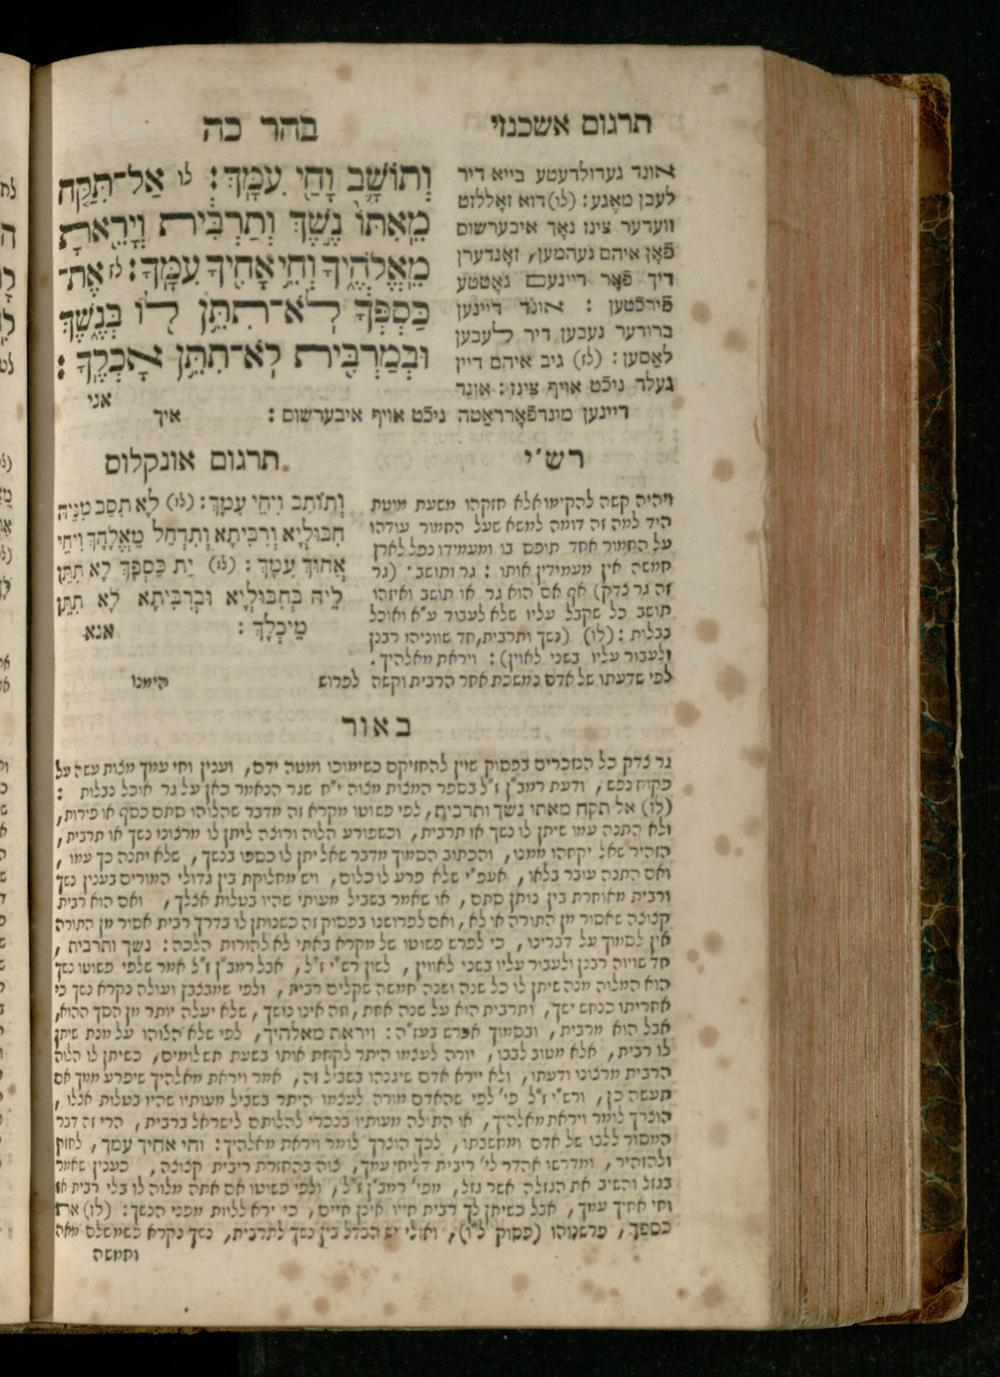 תרגום אשכנזי
בהר כה
וְתוֹשָׁב וָחַי עִמָּךְ׃ לו אַל־תִּקַּח
מֵאִתּוֹ נֶשֶׁךְ וְתַרְבִּית וְיָרֵאתָ
מֵאֱלֹהֶיךָ וְחֵי אָחִיךָ עִמָּךְ׃ לז אֶת־
כַּסְפְּךָ לֹא־תִתֵּן לוֹ בְּנֶשֶׁךְ
וּבְמַרְבִּית לֹא־תִתֵּן אָכְלֶךָ׃
אני
אונד געדולדעטע בייא דיר
לעבן מאֶגע: (לו) דוא זאָללזט
וועדער צינז נאָך איבערשוס
פֿאָן איהם נעהמען, זאָנדערן
דיך פֿאָר דיינעם גאָטטע
פֿירכֿטען : אונד דיינען
ברודער נעבען דיר לעבען
לאַסען: (לז) גיב איהם דיין
געלד ניכֿט אויף צינז: אונד
דיינען מונדפֿאָרראַטה ניכֿט אויף איבערשוס :
איך
רש״י
ויהיה קשה להקימו אלא חזקהו משעת מוטת
היד למה זה דומה למשא שעל החמור עודהו
על החמור אחד תופס בו ומעמידו נפל לארץ
חמשה אין מעמידין אותו : גר ותושב · (גר
זה גר צדק) אף אם הוא גר או תושב ואיזהו
תושב כל שקבל עליו שלא לעבוד ע״א ואוכל
נבלות : (לו) (נשך ותרבית, חד שוויהו רבנן
ולעבור עליו בשני לאוין) : ויראת מאלהיך .
לפי שדעתו של אדם נמשכת אחר הרבית וקשה לפרוש
הימנו
תרגום אונקלוס
וְתוֹתַב וִיחֵי עִמָּךְ: (לו) לָא תִסַּב מִנֵּיהּ
חִבּוּלְיָא וְרִבִּיתָא וְתִדְחַל מֵאֱלָהָךְ וִיחֵי
אֲחוּךְ עִמָּךְ: (לז) יָת כַּסְפָּךְ לָא תִתֵּן
לֵיהּ בְּחִבּוּלְיָא וּבְרִבִּיתָא לָא תִתֵּן
מֵיכְלָךְ :
אנא
באור
גר צדק כל הנזכרים בפסוק שוין להחזיקם כשימוכו ומטה ידם, וענין וחי עמך מצות עשה על
פקוח נפש, ודעת רמב״ן ז״ל בספר המצות מצוה י״ח שגר הנאמר כאן על גר אוכל נבלות :
(לו) אל תקח מאתו נשך ותרבית, לפי פשוטו מקרא זה מדבר שהלוהו סתם כסף או פירות,
ולא התנה עמו שיתן לו נשך או תרבית, וכשפורע הלוה ורוצה ליתן לו מרצונו נשך או תרבית,
הזהיר שאל יקחהו ממנו, והכתוב הסמוך מדבר שאל יתן לו כספו בנשך, שלא יתנה כך עמו,
ואם התנה עובר בלאו, אעפ״י שלא פרע לו כלום, ויש מחלוקת בין גדולי המורים בענין נשך
ורבית מאוחרת בין נותן סתם, או שאמר בשביל מעותי שהיו בטלות אצלך, ואם הוא רבית
קצוצה שאסור מן התורה או לא, ואם לפרושנו בפסוק זה כשנותן לו בדרך רבית אסור מן התורה
אין לסמוך על דברינו, כי לפרש פשוטו של מקרא באתי לא להורות הלכה: נשך ותרבית,
חד שויוה רבנן ולעבור עליו בשני לאווין, לשון רש״י ז״ל, אבל רמב״ן ז״ל אמר שלפי פשוטו נשך
הוא המלוה מנה שיתן לו כל שנה ושנה חמשה שקלים רבית, ולפי שמצבצן ועולה נקרא נשך כי
אחריתו כנחש ישך, ותרבית הוא על שנה אחת, וזה אינו נושך, שלא יעלה יותר מן הסך ההוא,
אבל הוא מרבית, ובסמוך אפרש בעז״ה: ויראת מאלהיך, לפי שלא הלוהו על מנת שיתן
לו רבית, אלא מטוב לבבו, יורה לעצמו היתר לקחת אותו בשעת תשלומים, כשיתן לו הלוה
הרבית מרצונו ודעתו, ולא יירא אדם שיגנהו בשביל זה, אמר ויראת מאלהיך שיפרע ממך אם
תעשה כן, ורש״י ז״ל פי׳ לפי שהאדם מורה לעצמו היתר בשביל מעותיו שהיו בטלות אצלו,
הוצרך לומר ויראת מאלהיך, או התולה מעותיו בנכרי להלותם לישראל ברבית, הרי זה דבר
המסור ללבו של אדם ומחשבתו, לכך הוצרך לומר ויראת מאלהיך: וחי אחיך עמך, לחזק
ולהזהיר, ומדרשו אהדר לי׳ ריבית דליחי עמך, צוה בהחזרת ריבית קצוצה, כענין שאמר
בגזל והשיב את הגזלה אשר גזל, מפי׳ רמב״ן ז״ל, ולפי פשוטו אם אתה מלוה לו בלי רבית אז
וחי אחיך עמך, אבל כשיתן לך רבית חייו אינן חיים, כי ירא ללוות מפני הנשך: (לז) את
כספך, פרשנוהו (פסוק ל״ו), ואולי יש הבדל בין נשך לתרבית, נשך נקרא כשמשלם מאה
וחמשה